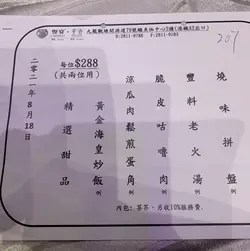 九龍觀塘開源道79號鱷魚恤中心2樓
207
燒味拼盤 例
豐料老火湯 例
脆皮咕嚕肉 例
涼瓜肉鬆煎蛋角 例
黃金海皇炒飯 例
精選甜品
每位$288
(共兩位用)
二零二一年8月18日
內包:茶芥,另收10%服務費.